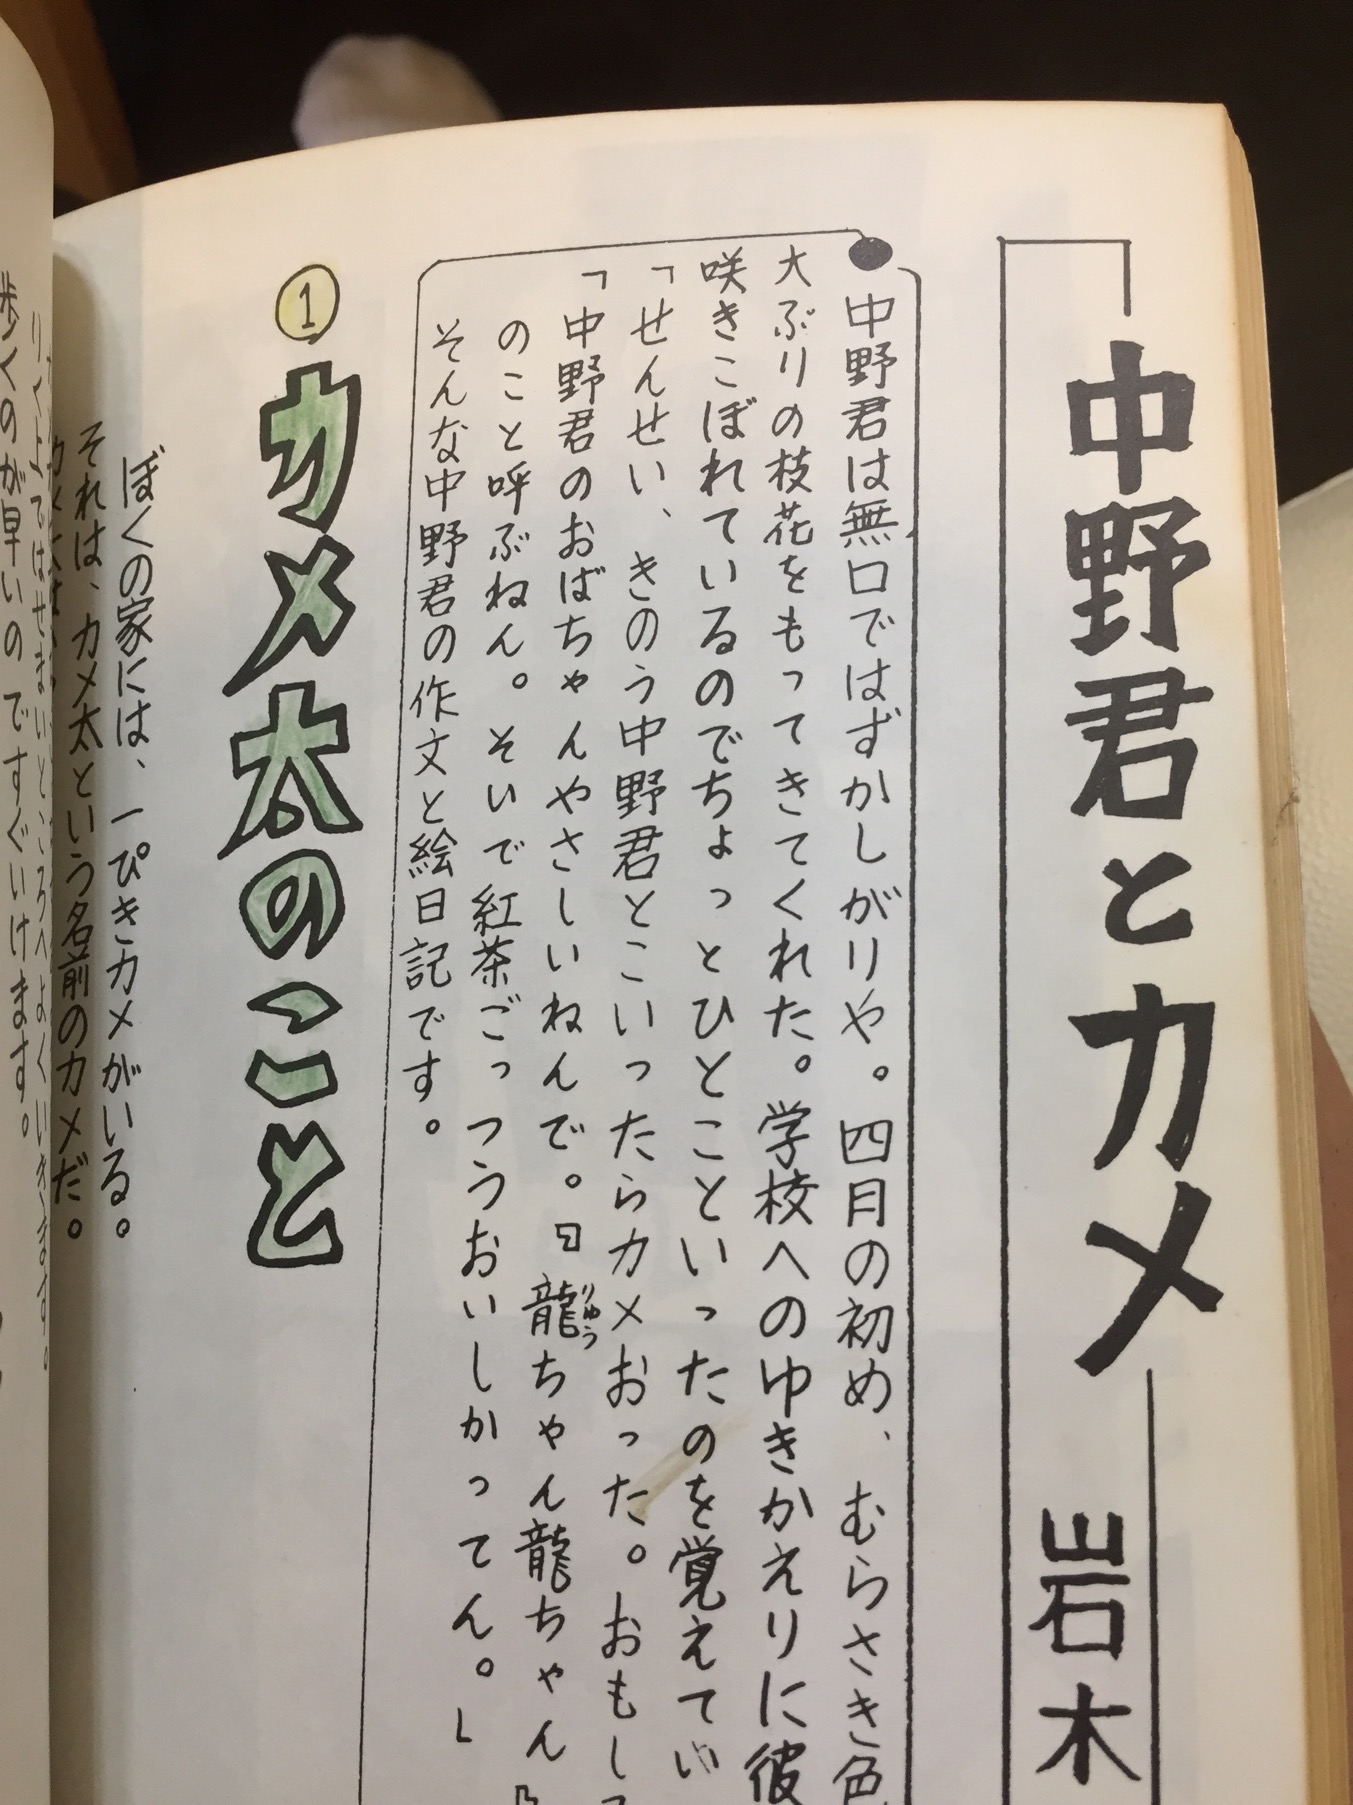 中野君とカメ 岩木
中野君は無口ではずかしがりや。四月の初め、むらさき色
大ぶりの枝花をもってきてくれた。学校へのゆきかえりに彼
咲きこぼれているのでちょっとひとこといったのを覚えてい
「せんせい、きのう中野君とこいったらカメおった。おもし
「中野君のおばちゃんやさしいねんで。日龍ちゃん龍ちゃん
りゅう
のこと呼ぶねん。そいで紅茶ごっつうおいしかってん。」
そんな中野君の作文と絵日記です。
① カメ太のこと
ぼくの家には、一ぴきカメがいる。
それは、カメ太という名前のカメだ。
りくょではせまいところへよくいきます。
歩くのが早いのですぐいけます。